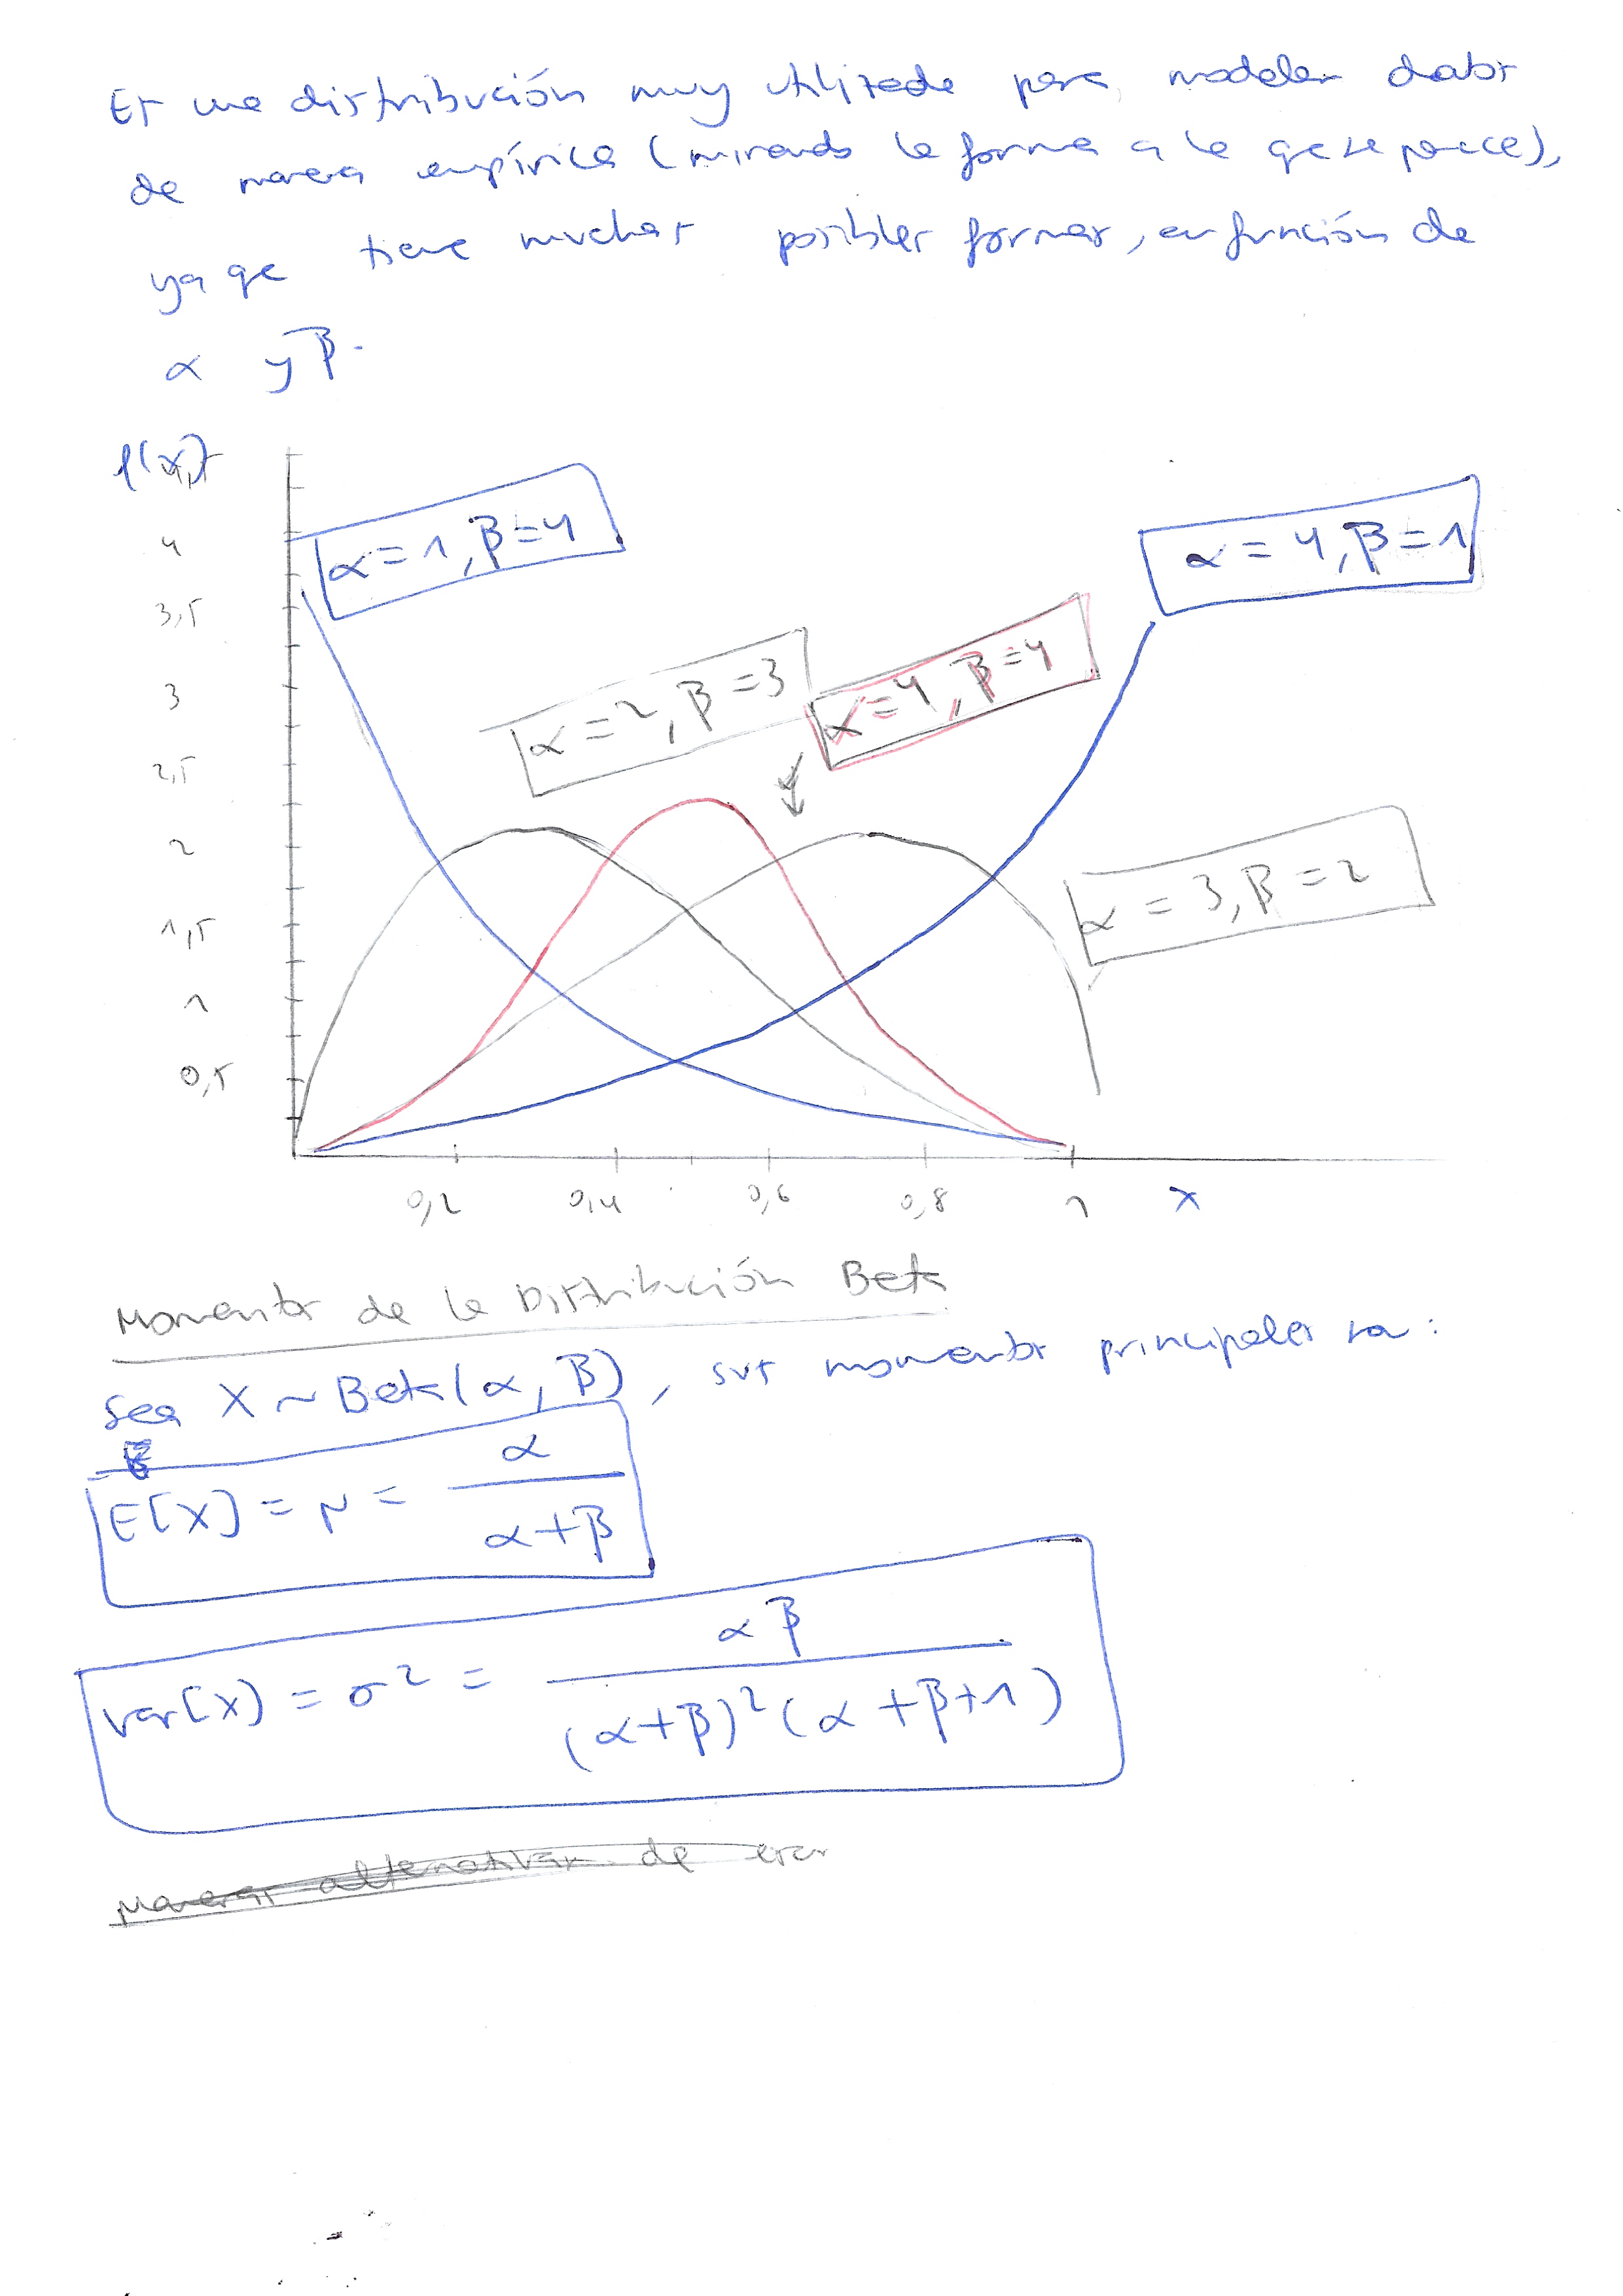 Es una distribución muy utilizada para modelar datos
de manera empírica (mirando la forma a la que se parece),
ya que tiene muchas posibles formas, en función de
α y β.
f(x)
4,5
4
3,5
3
2,5
2
1,5
1
0,5
α=1, β=4
α=4, β=1
α=2, β=3
α=4, β=4
α=3, β=2
0,2 0,4 0,6 0,8 1 x
Momentos de la Distribución Beta
Sea X ~ Beta(α, β), sus momentos principales son:
E[X] = μ = α / (α+β)
Var[X] = σ² = αβ / ((α+β)²(α+β+1))
Maneras alternativas de esas